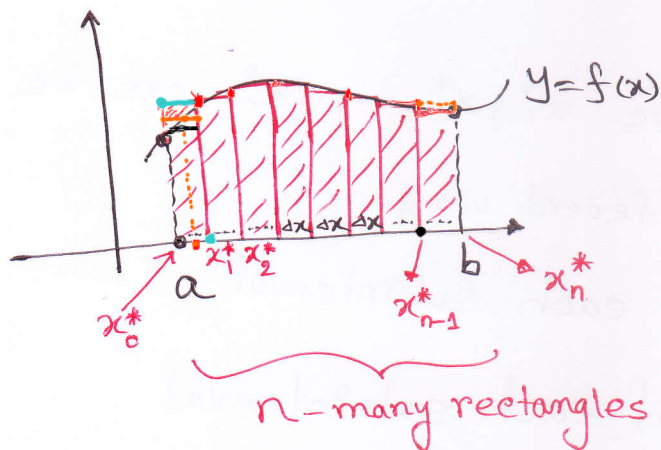 y=f(x)
Δx Δx Δx
x₁* x₂*
a b
x₀* xₙ₋₁* xₙ*
n-many rectangles